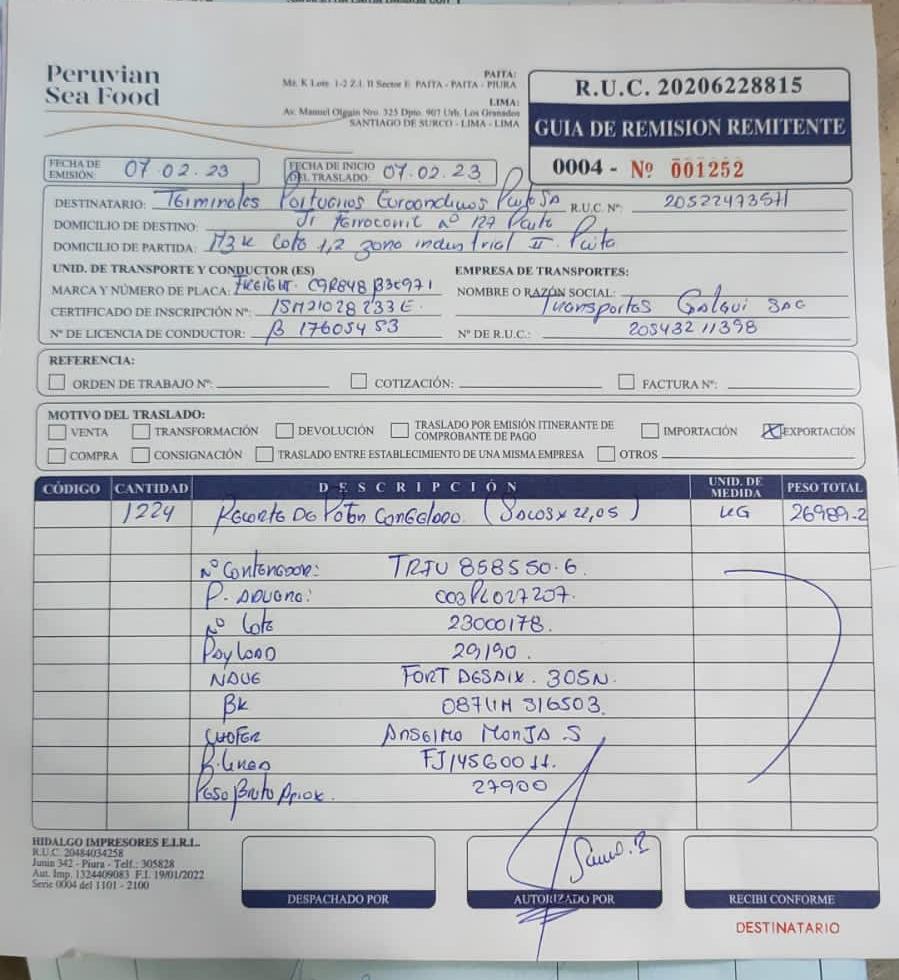 Peruvian
Sea Food
PAITA:
Mz. K Lote 1-2 Z.I. II Sector E PAITA - PAITA - PIURA
LIMA:
Av. Manuel Olguin Nro. 325 Dpto. 907 Urb. Los Granados
SANTIAGO DE SURCO - LIMA - LIMA
R.U.C. 20206228815
GUIA DE REMISION REMITENTE
0004 - Nº 001252
FECHA DE EMISIÓN: 07.02.23
FECHA DE INICIO DEL TRASLADO: 07.02.23
DESTINATARIO: Terminales Portuarios Euroandinos Paita SA R.U.C. Nº: 20522473571
DOMICILIO DE DESTINO: Jr Ferrocarril Nº 127 Paita
DOMICILIO DE PARTIDA: Mz K Lote 1,2 zona industrial II Paita
UNID. DE TRANSPORTE Y CONDUCTOR (ES)
MARCA Y NÚMERO DE PLACA: FREIGHT. C9R848 B3E971
CERTIFICADO DE INSCRIPCIÓN Nº: 15M21028233E.
Nº DE LICENCIA DE CONDUCTOR: B 17605453
EMPRESA DE TRANSPORTES:
NOMBRE O RAZÓN SOCIAL:
Transportes Galqui SAC
Nº DE R.U.C.: 20543211398
REFERENCIA:
ORDEN DE TRABAJO Nº: COTIZACIÓN: FACTURA Nº:
MOTIVO DEL TRASLADO:
VENTA TRANSFORMACIÓN DEVOLUCIÓN TRASLADO POR EMISIÓN ITINERANTE DE COMPROBANTE DE PAGO IMPORTACIÓN X EXPORTACIÓN
COMPRA CONSIGNACIÓN TRASLADO ENTRE ESTABLECIMIENTO DE UNA MISMA EMPRESA OTROS
CÓDIGO CANTIDAD DESCRIPCIÓN UNID. DE MEDIDA PESO TOTAL
1224 Recorte De Pota Congelado. (Sacos x 22,05) KG 26989.2
Nº Contenedor: TRIU 858550.6
P. ADUANA: 003PL027207.
Nº Lote 23000178.
PayLOAD 29190.
NAVE FORT DESAIX. 305N.
BK 0871IH 316503.
CHOFER Anselmo Monja S
P. Linea FJ14560011.
Peso Bruto Aprox. 27900
HIDALGO IMPRESORES E.I.R.L.
R.U.C. 20484034258
Junin 342 - Piura - Telf.: 305828
Aut. Imp. 1324409083 F.I. 19/01/2022
Serie 0004 del 1101 - 2100
DESPACHADO POR
AUTORIZADO POR
RECIBI CONFORME
DESTINATARIO